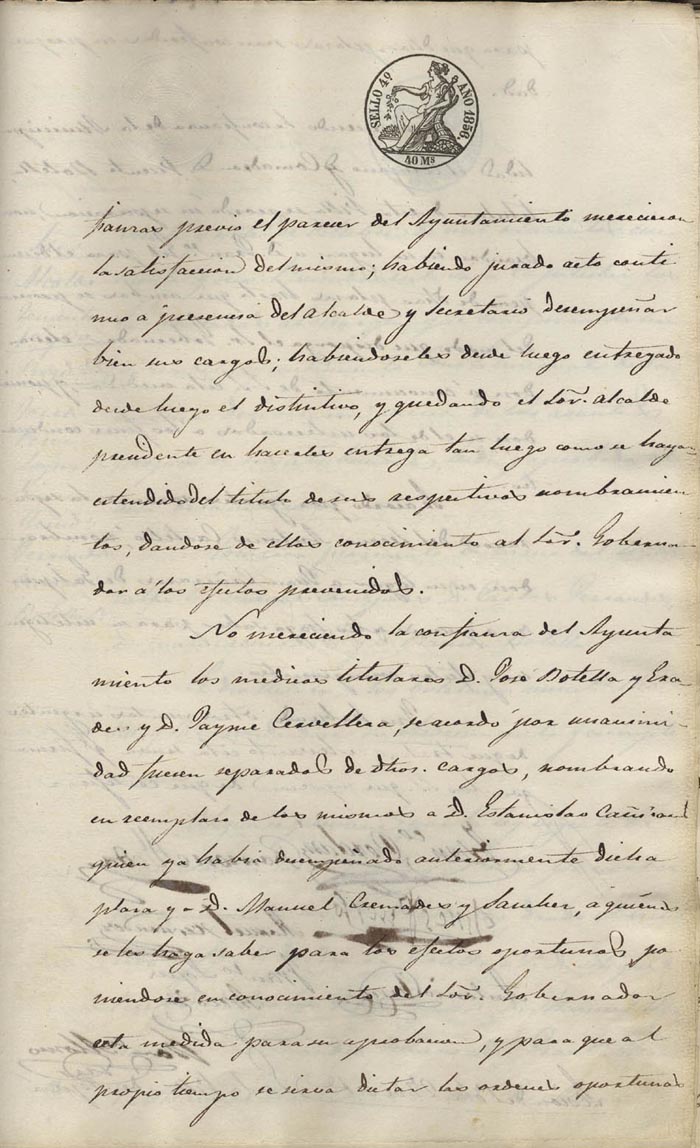 SELLO 4º AÑO 1856.
40 Ms
fianzas previo el parecer del Ayuntamiento merecieron
la satisfaccion del mismo; habiendo jurado acto conti
nuo a presencia del Alcalde y Secretario desempeñar
bien sus cargos; habiendoseles desde luego entregado
desde luego el distintivo, y quedando el Sor. Alcalde
prendente en hacerles entrega tan luego como se hayan
estendido del titulo de sus respectivos nombramien
tos, dandose de ellos conocimiento al Sor. Goberna-
dor á los efectos prevenidos.
No mereciendo la confianza del Ayunta
miento los medicos titulares D. José Botella y
y D. Jayme Cervellera, se acordó por unanimi
dad fuesen separados de dhos. cargos, nombrando
en reemplazo de los mismos a D. Estanislao
quien ya habia desempeñado anteriormente dicha
plaza y a D. Manuel Cremades y Sanchez, a quienes
se les haga saber para los efectos oportunos po
niendose en conocimiento del Sor. Gobernador
esta medida para su aprobacion, y para que al
propio tiempo se sirva dictar las ordenes oportunas